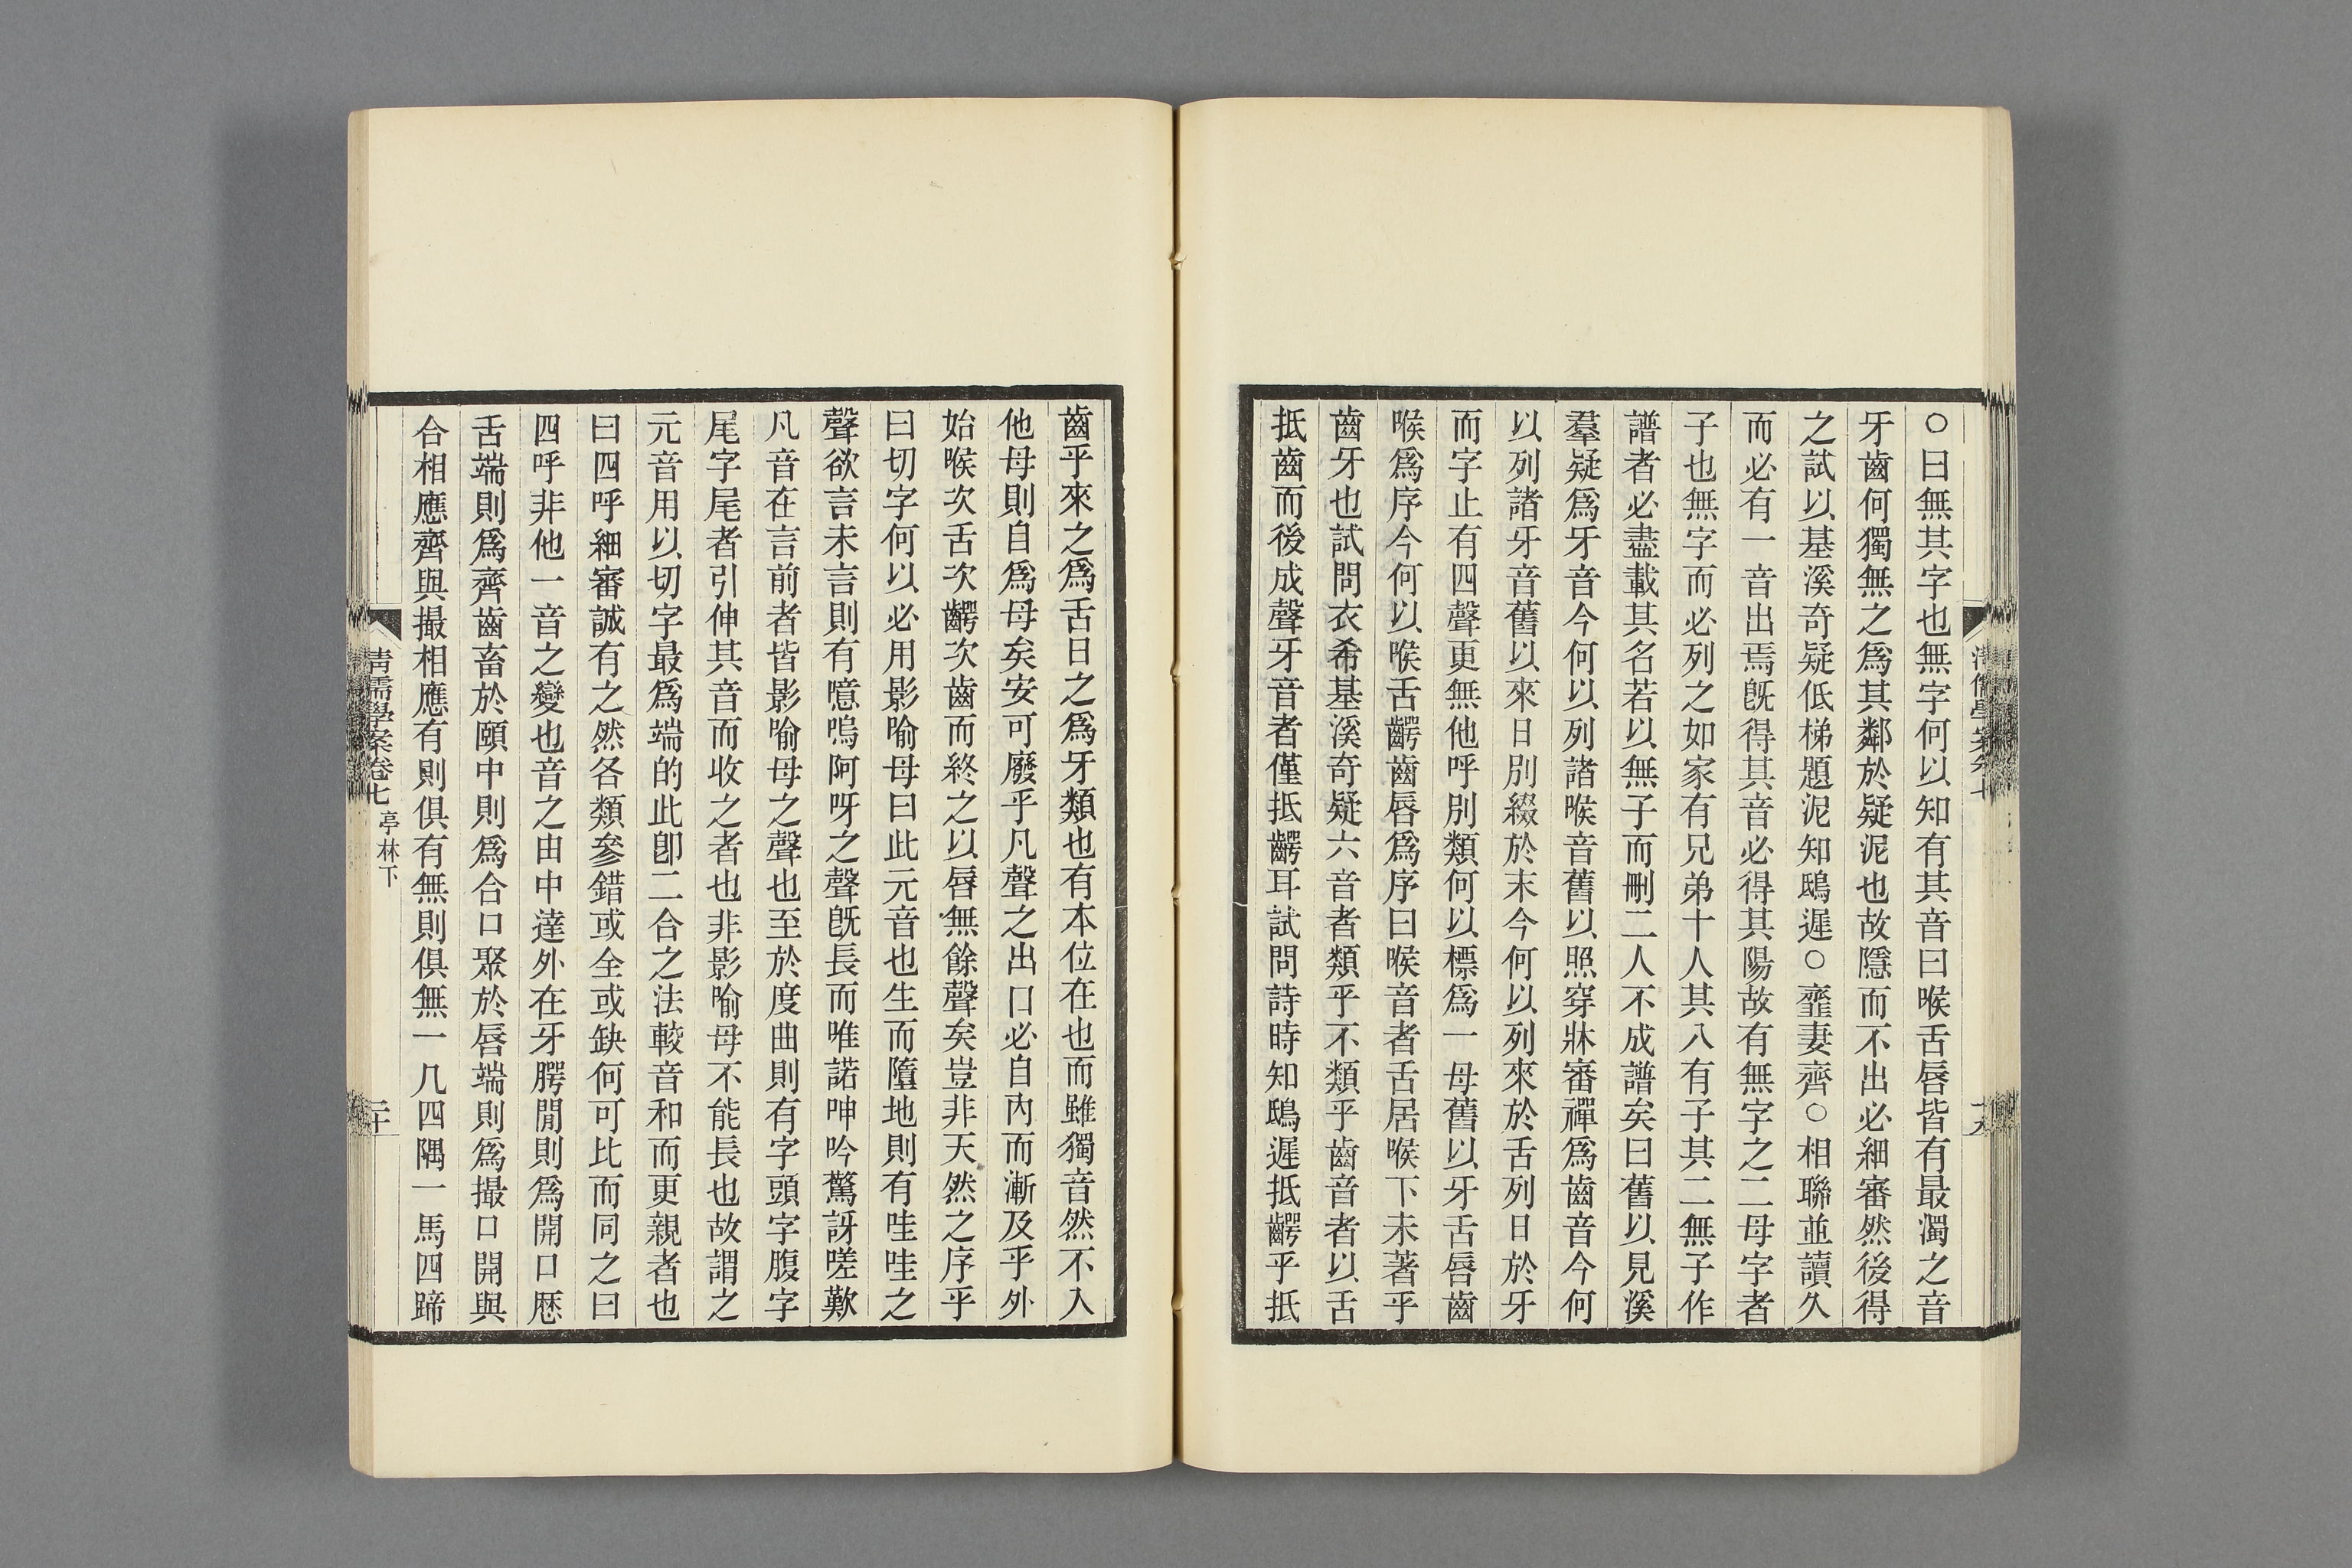 ○曰無其字也無字何以知有其音曰喉舌唇皆有最濁之音
牙齒何獨無之爲其鄰於疑泥也故隱而不出必細審然後得
之試以基溪奇疑低梯題泥知鴟遲○虀妻齊○相聯並讀久
而必有一音出焉旣得其音必得其陽故有無字之二母字者
子也無字而必列之如家有兄弟十人其八有子其二無子作
譜者必盡載其名若以無子而刪二人不成譜矣曰舊以見溪
羣疑爲牙音今何以列諸喉音舊以照穿牀審禪爲齒音今何
以列諸牙音舊以來日別綴於末今何以列來於舌列日於牙
而字止有四聲更無他呼別類何以標爲一母舊以牙舌唇齒
喉爲序今何以喉舌齶齒唇爲序曰喉音者舌居喉下未著乎
齒牙也試問衣希基溪奇疑六音者類乎不類乎齒音者以舌
抵齒而後成聲牙音者僅抵齶耳試問詩時知鴟遲抵齶乎抵
齒乎來之爲舌日之爲牙類也有本位在也而雖獨音然不入
他母則自爲母矣安可廢乎凡聲之出口必自內而漸及乎外
始喉次舌次齶次齒而終之以唇無餘聲矣豈非天然之序乎
曰切字何以必用影喻母曰此元音也生而墮地則有哇哇之
聲欲言未言則有噫嗚阿呀之聲旣長而唯諾呻吟驚訝嗟歎
凡音在言前者皆影喻母之聲也至於度曲則有字頭字腹字
尾字尾者引伸其音而收之者也非影喻母不能長也故謂之
元音用以切字最爲端的此卽二合之法較音和而更親者也
曰四呼細審誠有之然各類參錯或全或缺何可比而同之曰
四呼非他一音之變也音之由中達外在牙腭閒則爲開口歷
舌端則爲齊齒畜於頤中則爲合口聚於唇端則爲撮口開與
合相應齊與撮相應有則俱有無則俱無一几四隅一馬四蹄
清儒學案卷七 亭林下
二十